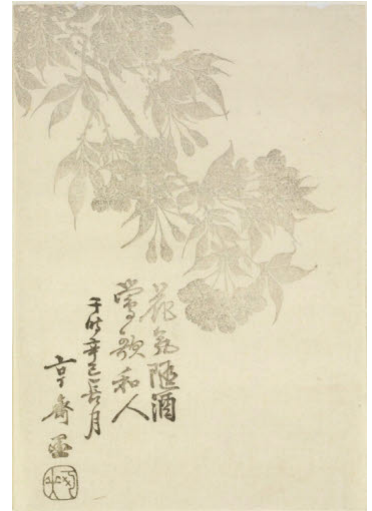 花氣随酒
鶯歌和人
于時辛巳長月
亨齋